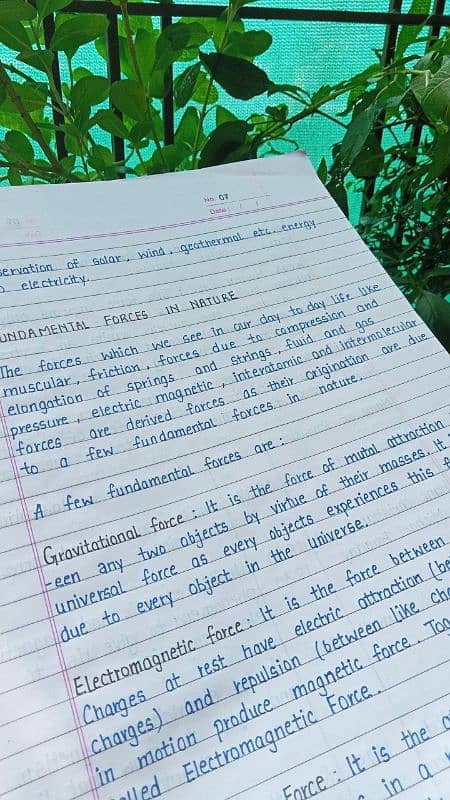 No. 07
Date: / /
servation of solar, wind, geothermal etc. energy
electricity.
UNDAMENTAL FORCES IN NATURE
The forces which we see in our day to day life like
muscular, friction, forces due to compression and
elongation of springs and strings, fluid and gas
pressure, electric magnetic, interatomic and intermolecular
forces are derived forces as their origination are due
to a few fundamental forces in nature.
A few fundamental forces are:
Gravitational force: It is the force of mutal attraction
-een any two objects by virtue of their masses. It
universal force as every objects experiences this f
due to every object in the universe.
Electromagnetic force: It is the force between
Charges at rest have electric attraction (be
charges) and repulsion (between like cha
in motion produce magnetic force. Tog
alled Electromagnetic Force.
Force: It is the
in a